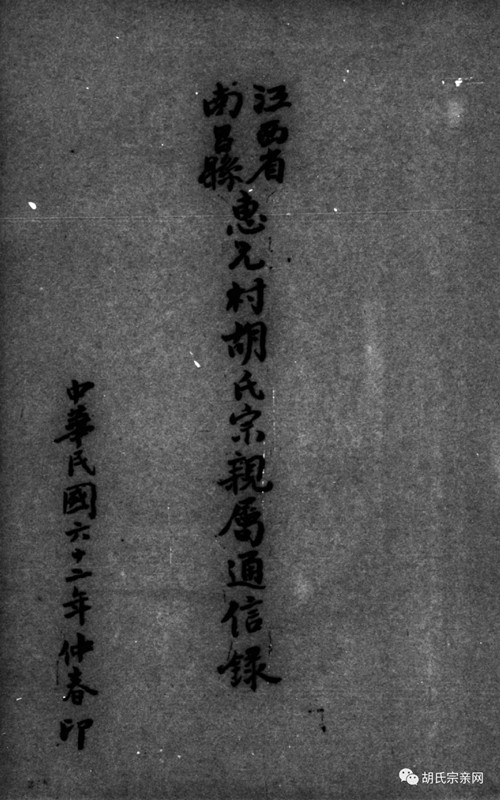 江西省
南昌縣
惠元村胡氏宗親屬通信錄
中華民國六十二年仲春印
胡氏宗亲网